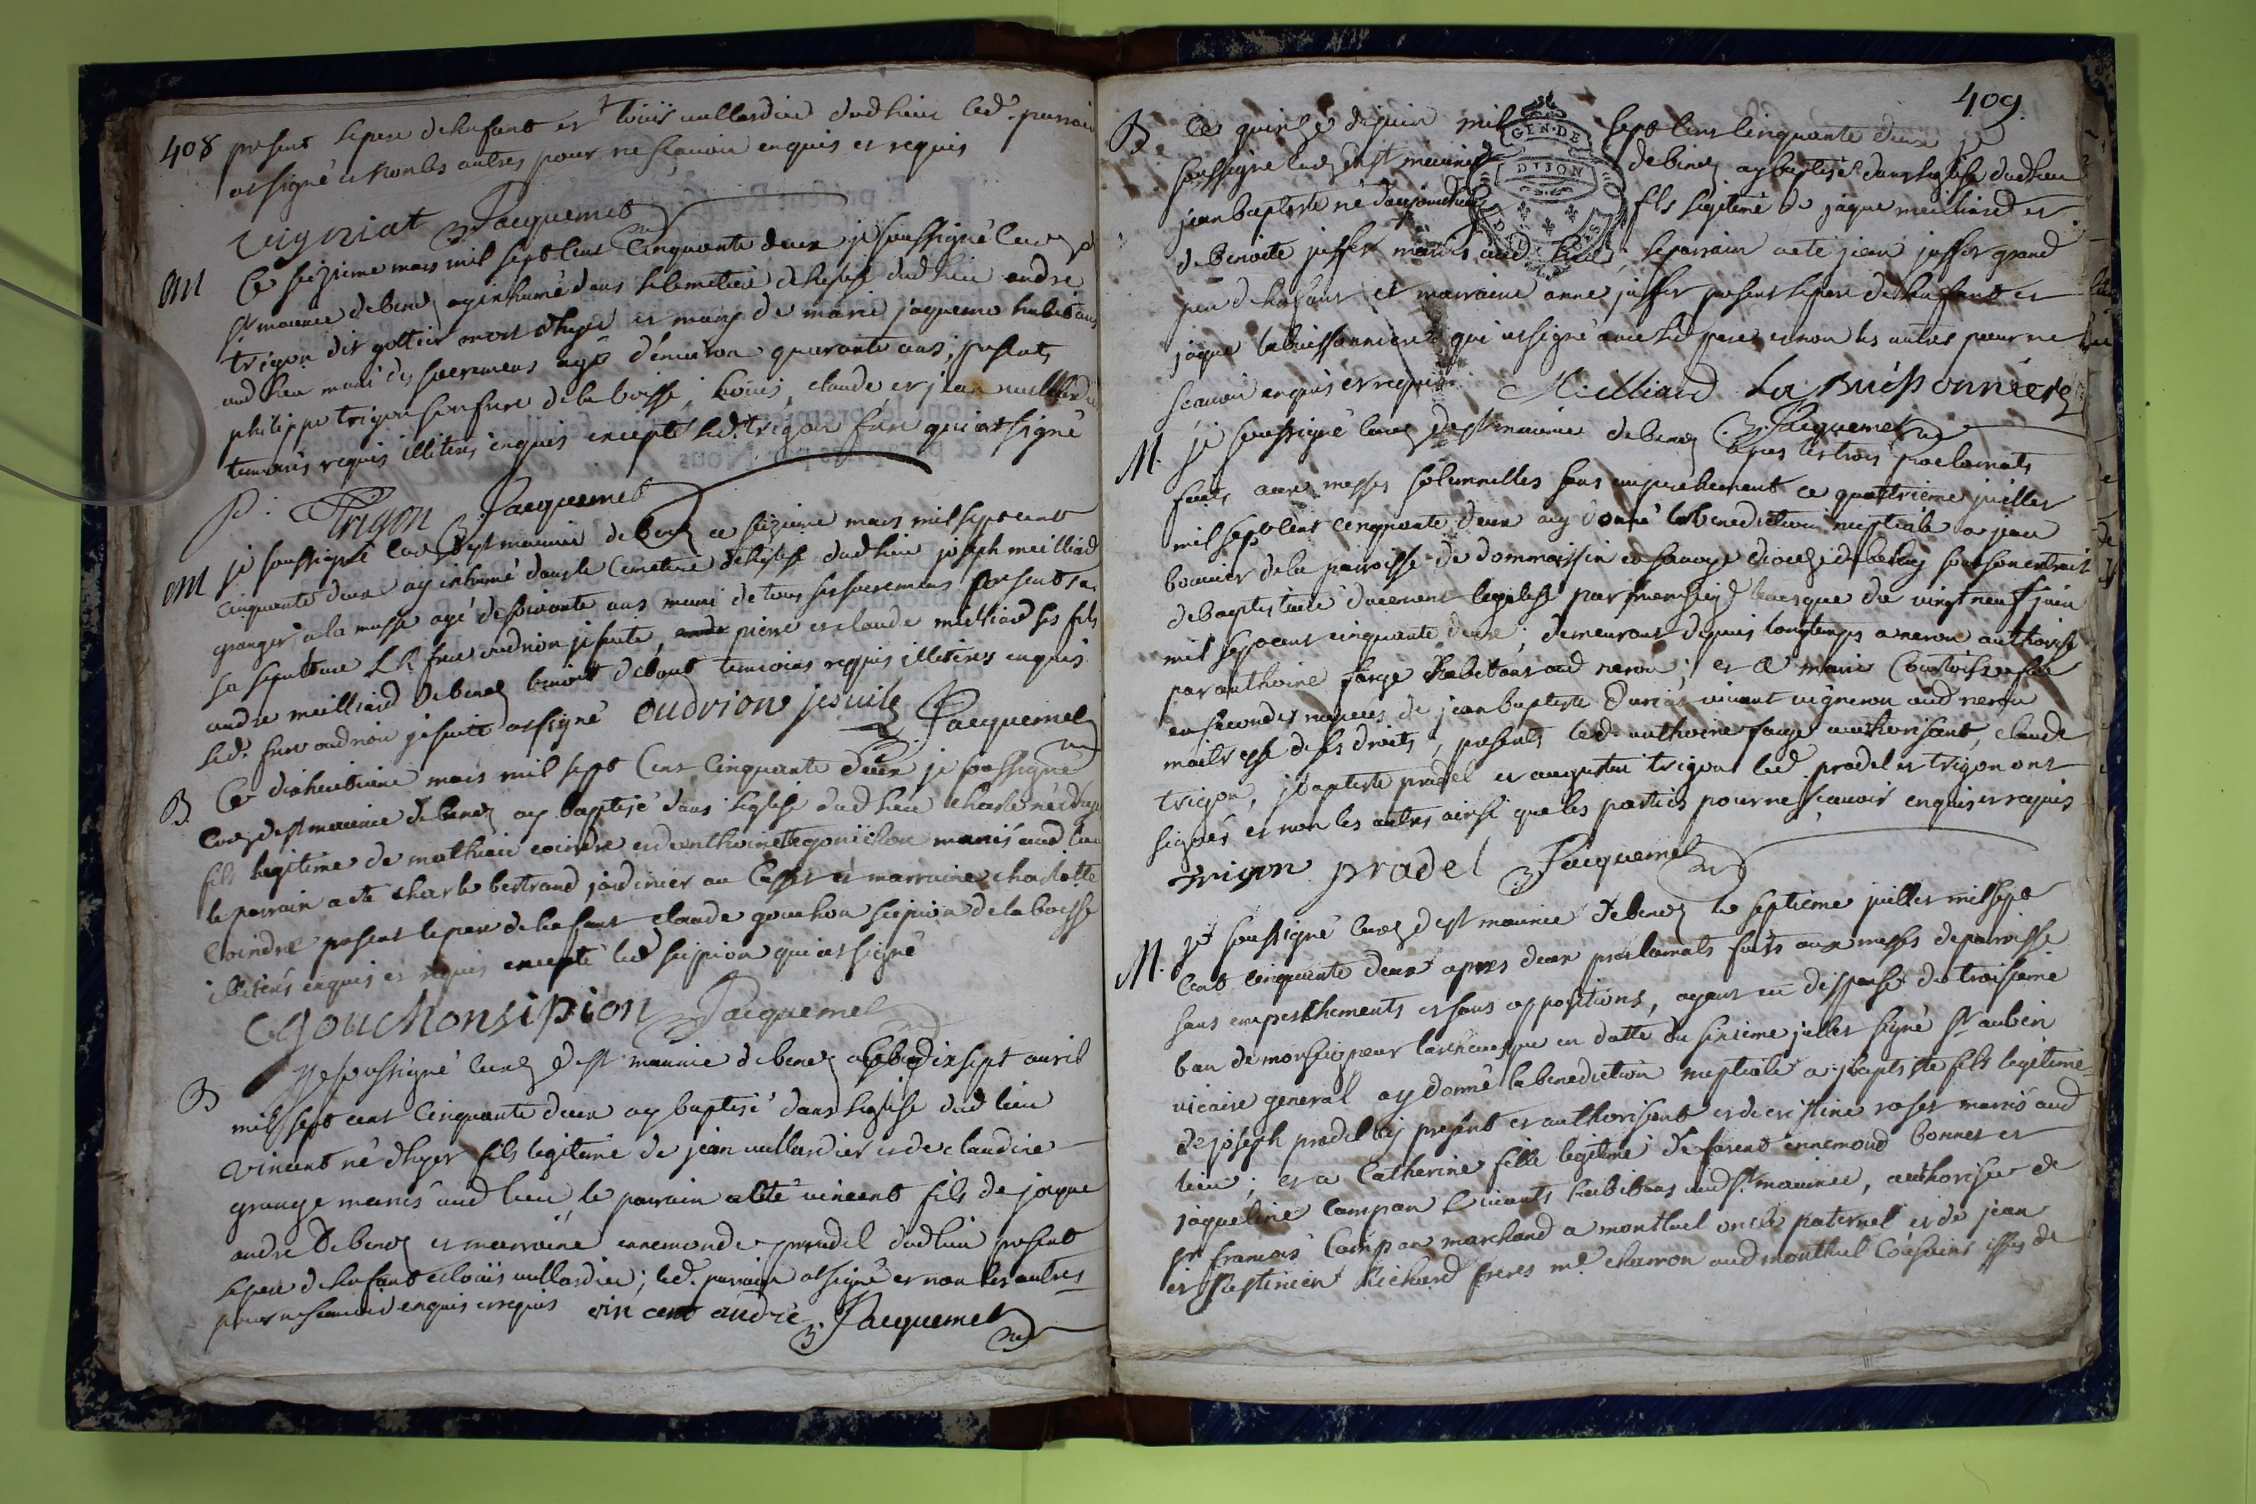 408 present le pere de l'enfant et louis vullardier dud lieu led. parrain
at signé et non les autres pour ne sçavoir enquis et requis
vigniat Jacquemet
M Ce seizieme mars mil sept cent cinquante deux je soussigné curé de
st maurice de benoz ay inhumé dans le cimetiere de leglise dud lieu andre
trigon dit golliet mort d'hyer et mary de marie jaqueme habitans
aud lieu muni des sacremens agé d'environ quarante ans, presents
philippe trigon son frere de la boisse, louis, claude, et jean vullardier
temoins requis illiteres enquis excepté led. trigon frere qui at signé
P. Trigon Jacquemet
M je soussigné curé de st maurice de benoz ce seizieme mars mil sept cent
cinquante deux ay inhumé dans le cimetiere de leglise dud lieu joseph meilliard
granger a la masse agé de soixante ans muni de tous ses sacremens presents a
sa sepulture L R frere oudrion jesuite, pierre et claude milliard ses fils
andre meilliard de benoz benoit debout temoins requis illiteres enquis
led. frere oudrion jesuite at signé oudrion jesuite Jacquemet
B Ce dixhuitieme mars mil sept cent cinquante deux je soussigné
curé de st maurice de benoz ay baptisé dans leglise dud lieu charle né d'hyer
fils legitime de mathieu coindre et d'anthoinette gonichon mariés aud lieu
le parrain a eté charle bertrand jardinier au et marraine charlotte
coindre present le pere de l'enfant claude gouchon scipion de la boisse
illiterés enquis et requis excepté led scipion qui at signé
Gouchon sipion Jacquemet
B Je soussigné curé de st maurice de benoz ce dixsept avril
mil sept cent cinquante deux ay baptisé dans leglise dud lieu
vincent né d'hyer fils legitime de jean vullardier et de claudine
grange mariés aud lieu, le parrain a eté vincent fils de jaque
andre de benoz et marraine ennemonde pradel dud lieu present
le pere de l'enfant et louis vullardier; led. parrain at signé et non les autres
pour ne scavoir enquis et requis vincent andre Jacquemet
409
B Ce quinze de juin mil sept cent cinquante deux je
soussigné curé de st maurice de benoz ay baptisé dans leglise dud lieu
jean baptiste né d'aujourdhuy fils legitime de jaque meilliard et
de benoite juffet mariés aud lieu; le parrain a eté jean juffet grand
pere de l'enfant et marraine anne juffet present le pere de l'enfant et
jaque labuissonniere qui at signé avec led pere et non les autres pour ne
scavoir enquis et requis. Milliard La Buissonniere
Jacquemet
M. je soussigné curé de st maurice de benoz apres les trois proclamats
faits aux messes solemnelles sans empechement ce quattrieme juillet
mil sept cent cinquante deux ay donné la benediction nuptiale a jean
bouvier de la parroisse de dommaissin en savoye dioceze de belley son extrait
de baptistaire duement legalisé par monseig levesque du vingt neuf juin
mil sept cent cinquante deux; demeurant depuis longtemps a neron authorisé
par anthoine farge habitant aud neron; et a marie
en secondes noces de jean baptiste vivant vigneron aud neron
maitresse de ses droits, presents led. anthoine farge authorisant, claude
trigon, jbaptiste pradel et augustin trigon led. pradel et trigon ont
signés et non les autres ainsi que les parties pour ne scavoir enquis et requis
trigon pradel Jacquemet
M. Je soussigné curé de st maurice de benoz le septieme juillet mil sept
cent cinquante deux apres deux proclamats faits aux messes de parroisse
sans empeschements et sans oppositions, ayant eu dispense du troisieme
ban de monseigneur larcheveque en datte du sixieme juillet signé st aubin
vicaire general ay donné la benediction nuptiale a jbaptiste fils legitime
de joseph pradel cy present et authorisant et de cristine roset mariés aud
lieu; et a Catherine fille legitime de ennemond bonnet et
jaqueline campan vivants habitans aud st maurice, authorisée de
sr francois campan marchand a montluel oncle paternel et de jean
et richard freres md charron aud montluel cousins issus de